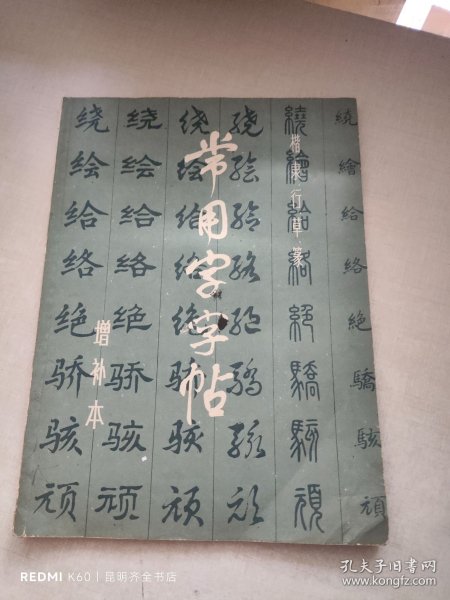 常用字字帖
楷隶行草篆
增补本
绕 绕 绕 绕 繞 繞
绘 绘 绘 绘 繪 繪
给 给 给 给 給 給
络 络 络 络 絡 絡
绝 绝 绝 绝 絕 絶
骄 骄 骄 骄 驕 驕
骇 骇 骇 骇 駭 駭
顽 顽 顽 顽 頑 頑
REDMI K60 | 昆明齐全书店
孔夫子旧书网
www.kongfz.com